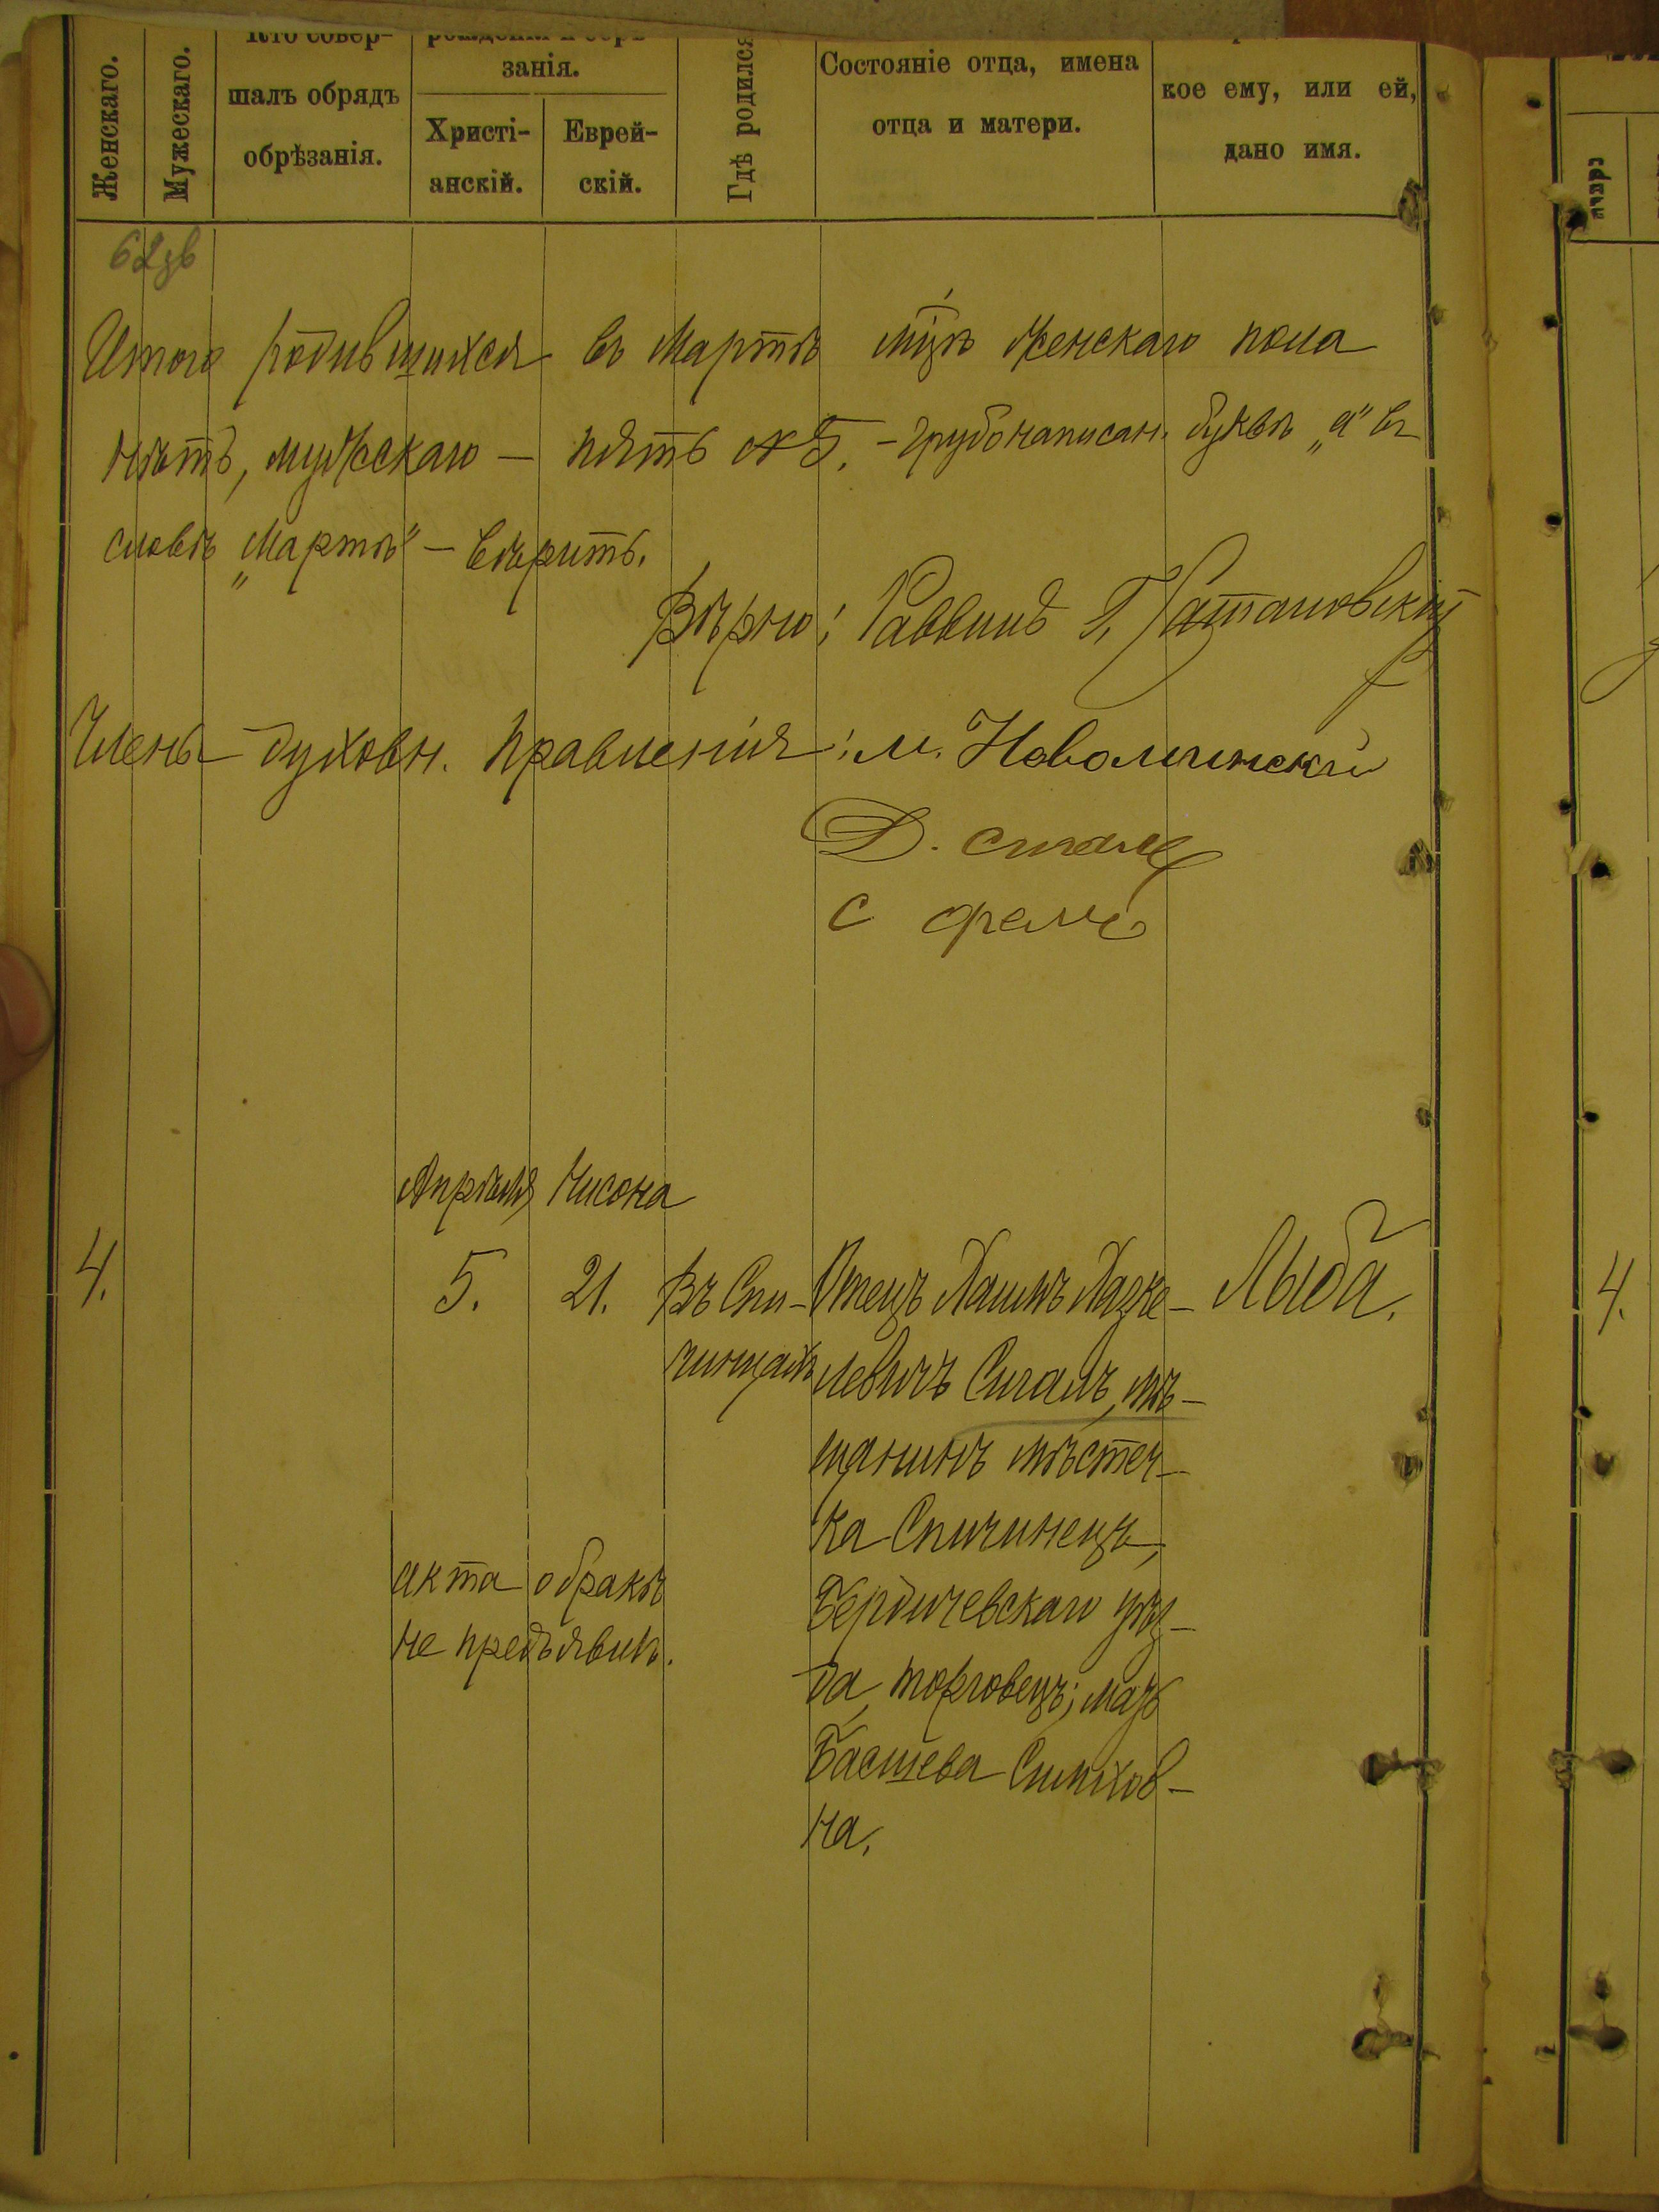 Женскаго.
Мужескаго.
Кто совер-
шалъ обрядъ
обрѣзанія.
рожденія и обрѣ-
занія.
Христі-
анскій.
Еврей-
скій.
Гдѣ родился
Состояніе отца, имена
отца и матери.
кое ему, или ей,
дано имя.
Итого родившихся въ Мартѣ м-цѣ женскаго пола
нѣтъ, мужскаго — пять № 5. — грубо написан. буквѣ „а" въ
словѣ „Мартѣ" — вѣрить.
Вѣрно: Раввинъ
Члены духовн. Правленія: М.
Д. Сигалъ
С
Апрѣля Нисона
4.
5.
21.
Въ Спи-
чинцахъ
Отецъ Хаимъ Хазке-
левичъ Сигалъ, мѣ-
щанинъ мѣстеч-
ка Спичинецъ,
Бердичевскаго уѣз-
да, торговецъ; мать
Басшева Симхов-
на.
Лыба.
акта о бракѣ
не предъявилъ.
4.